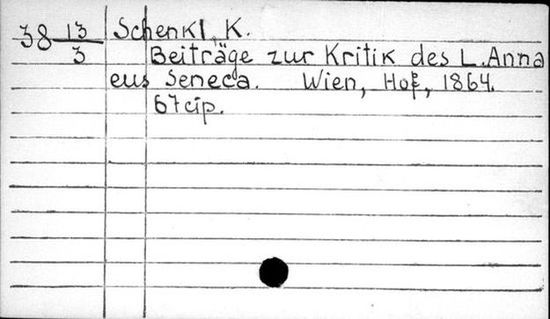 38 13/3 Schenkl, K.
Beiträge zur Kritik des L. Anna
eus Seneca. Wien, Hof, 1864.
67 cip.